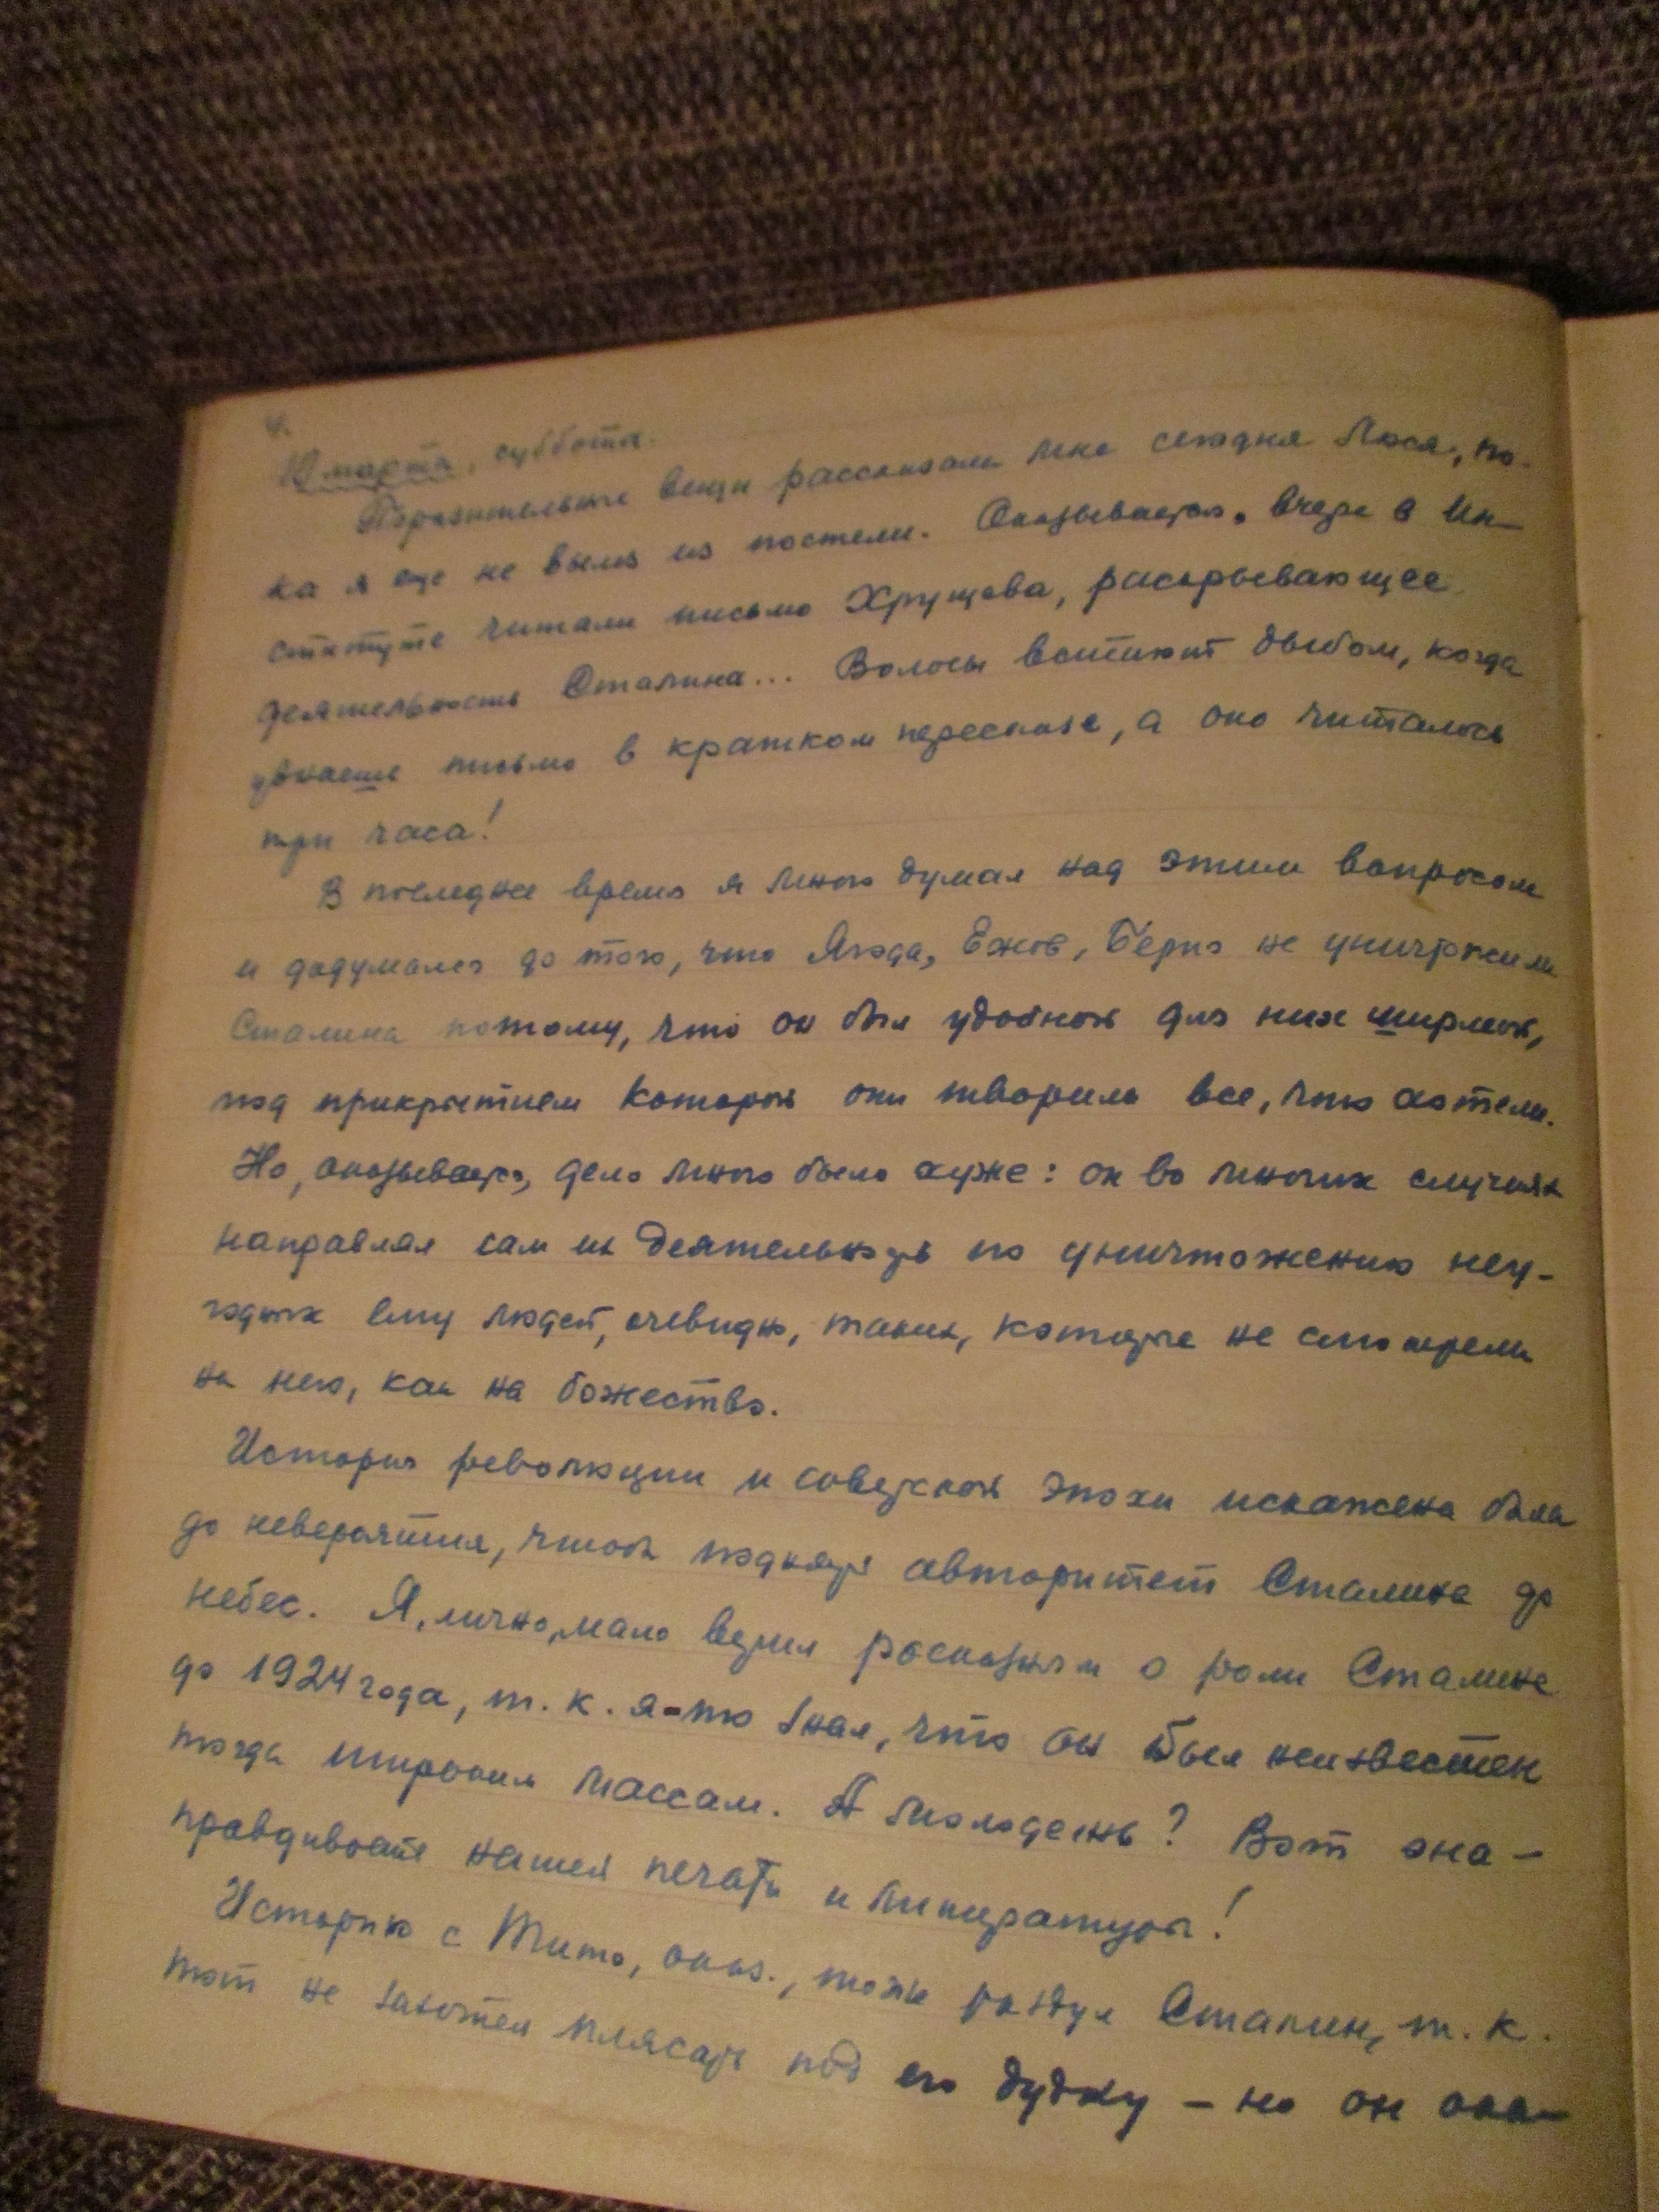 4.
10 марта, суббота.
Поразительные вещи рассказала мне сегодня Люся, по-
ка я еще не вылез из постели. Оказывается, вчера в Ин-
ституте читали письмо Хрущева, раскрывающее
деятельность Сталина... Волосы встают дыбом, когда
узнаешь письмо в кратком пересказе, а оно читалось
три часа!
В последнее время я много думал над этим вопросом
и додумался до того, что Ягода, Ежов, Берия не уничтожили
Сталина потому, что он был удобной для них ширмой,
под прикрытием которой они творили все, что хотели.
Но, оказывается, дело много было хуже: он во многих случаях
направлял сам их деятельность по уничтожению неу-
годных ему людей, очевидно, таких, которые не смотрели
на него, как на божество.
История революции и советской эпохи искажена была
до невероятия, чтобы поднять авторитет Сталина до
небес. Я, лично, мало верил россказням о роли Сталина
до 1924 года, т. к. я-то знал, что он был неизвестен
тогда широким массам. А молодежь? Вот она –
правдивость нашей печати и литературы!
Историю с Тито, оказ., тоже раздул Сталин, т. к.
тот не захотел плясать под его дудку – но он ока-